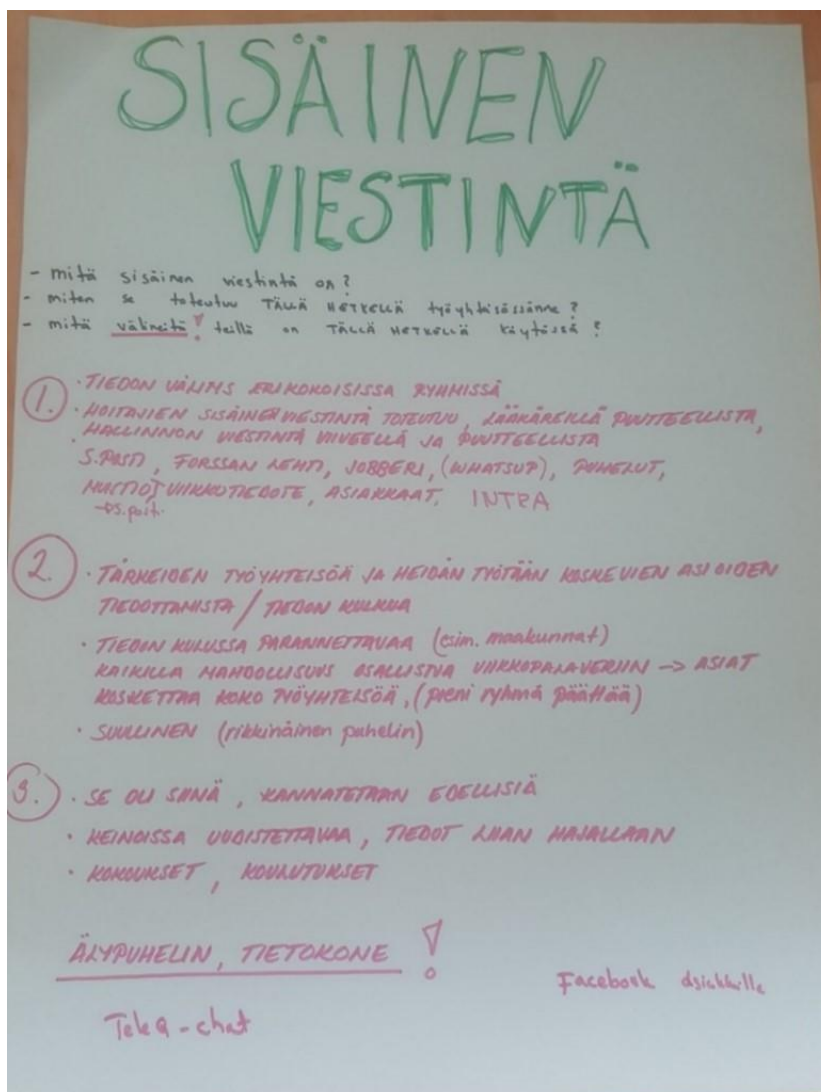 SISÄINEN
VIESTINTÄ
- mitä sisäinen viestintä on?
- miten se toteutuu TÄLLÄ HETKELLÄ työyhteisössänne?
- mitä välineitä! teillä on TÄLLÄ HETKELLÄ käytössä?
1. · TIEDON VÄLITYS ERIKOKOISISSA RYHMISSÄ
· HOITAJIEN SISÄINEN VIESTINTÄ TOTEUTUU, LÄÄKÄREILLÄ PUUTTEELLISTA,
· HALLINNON VIESTINTÄ VIIVEELLÄ JA PUUTTEELLISTA
S.POSTI, FORSSAN LEHTI, JOBBERI, (WHATSUP), PUHELUT,
MUISTIOT VIIKKOTIEDOTE, ASIAKKAAT, INTRA
→ S.posti
2. · TÄRKEIDEN TYÖYHTEISÖÄ JA HEIDÄN TYÖTÄÄN KOSKEVIEN ASIOIDEN
TIEDOTTAMISTA / TIEDON KULKUA
· TIEDON KULUSSA PARANNETTAVAA (esim. maakunnat)
KAIKILLA MAHDOLLISUUS OSALLISTUA VIIKKOPALAVERIIN -> ASIAT
KOSKETTAA KOKO TYÖYHTEISÖÄ, (pieni ryhmä päättää)
· SUULLINEN (rikkinäinen puhelin)
3. · SE OLI SIINÄ, KANNATETAAN EDELLISIÄ
· KEINOISSA UUDISTETTAVAA, TIEDOT LIIAN HAJALLAAN
· KOKOUKSET, KOULUTUKSET
ÄLYPUHELIN, TIETOKONE !
Facebook asiakkaille
-chat